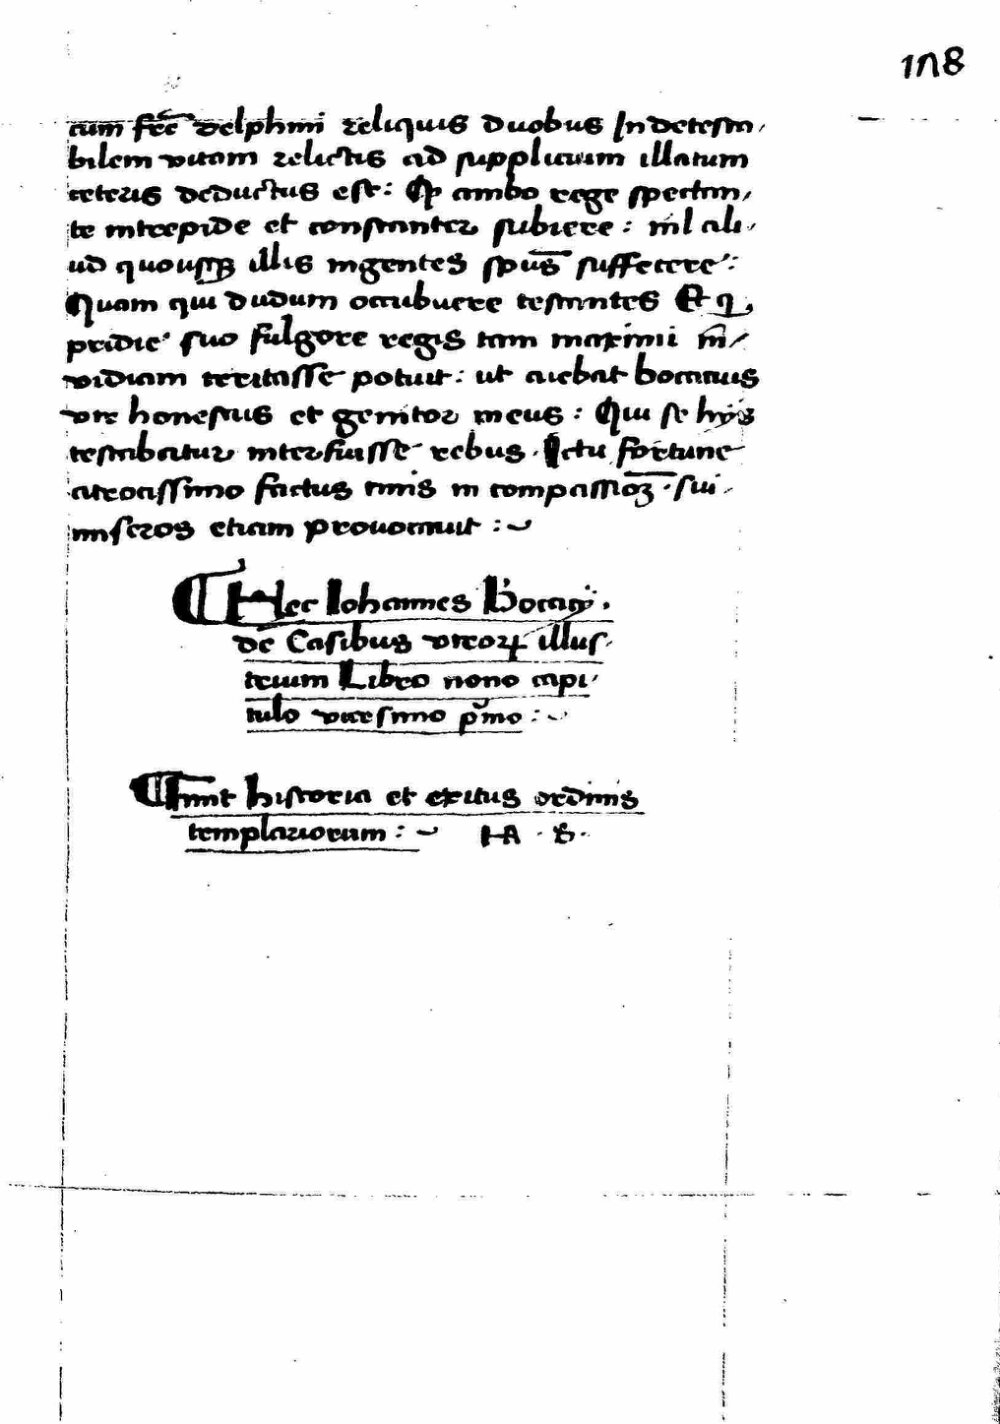 178
cum fr̄e delphini reliquis duobus In detesta/
bilem vitam relictis ad supplicium illatum
ceteris deductus est: Qd ambo rege spectan/
te intrepide et constanter subiere: nīl ali/
ud quousqꝫ illis ingentes sp̄us suffecere:
Quam qui dudum occubuere testantes Et q
pridie suo fulgore regis tam maximi in/
vidiam irritasse potuit: ut aiebat bocacius
vir honestus et genitor meus: Qui se hijs
testabatur interfuisse rebus. Ictu fortune
atrocissimo factus tinis in compassioꝫ. sui
miseros etiam provocauit:
Hec Iohannes Bocacij.
de Casibus viroꝝ illus/
trium Libro nono capi/
tulo vicesimo pͥmo:
Finit historia et exitus ordinis
templariorum: HA. S.